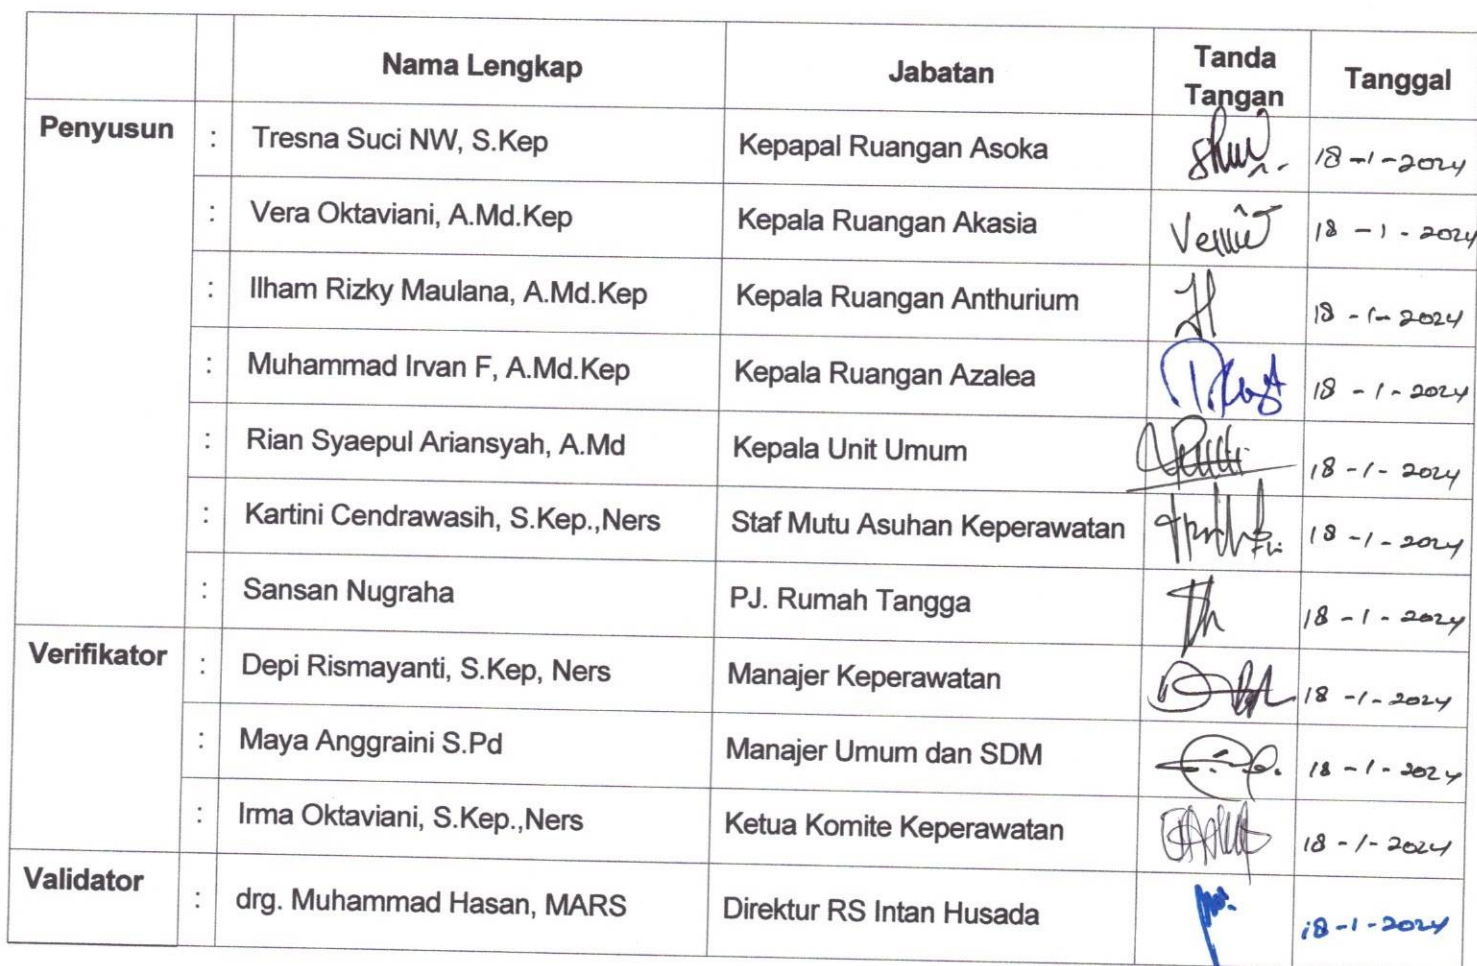 Nama Lengkap Jabatan Tanda Tangan Tanggal
Penyusun : Tresna Suci NW, S.Kep Kepapal Ruangan Asoka 18-1-2024
: Vera Oktaviani, A.Md.Kep Kepala Ruangan Akasia 18-1-2024
: Ilham Rizky Maulana, A.Md.Kep Kepala Ruangan Anthurium 18-1-2024
: Muhammad Irvan F, A.Md.Kep Kepala Ruangan Azalea 18-1-2024
: Rian Syaepul Ariansyah, A.Md Kepala Unit Umum 18-1-2024
: Kartini Cendrawasih, S.Kep.,Ners Staf Mutu Asuhan Keperawatan 18-1-2024
: Sansan Nugraha PJ. Rumah Tangga 18-1-2024
Verifikator : Depi Rismayanti, S.Kep, Ners Manajer Keperawatan 18-1-2024
: Maya Anggraini S.Pd Manajer Umum dan SDM 18-1-2024
: Irma Oktaviani, S.Kep.,Ners Ketua Komite Keperawatan 18-1-2024
Validator : drg. Muhammad Hasan, MARS Direktur RS Intan Husada 18-1-2024